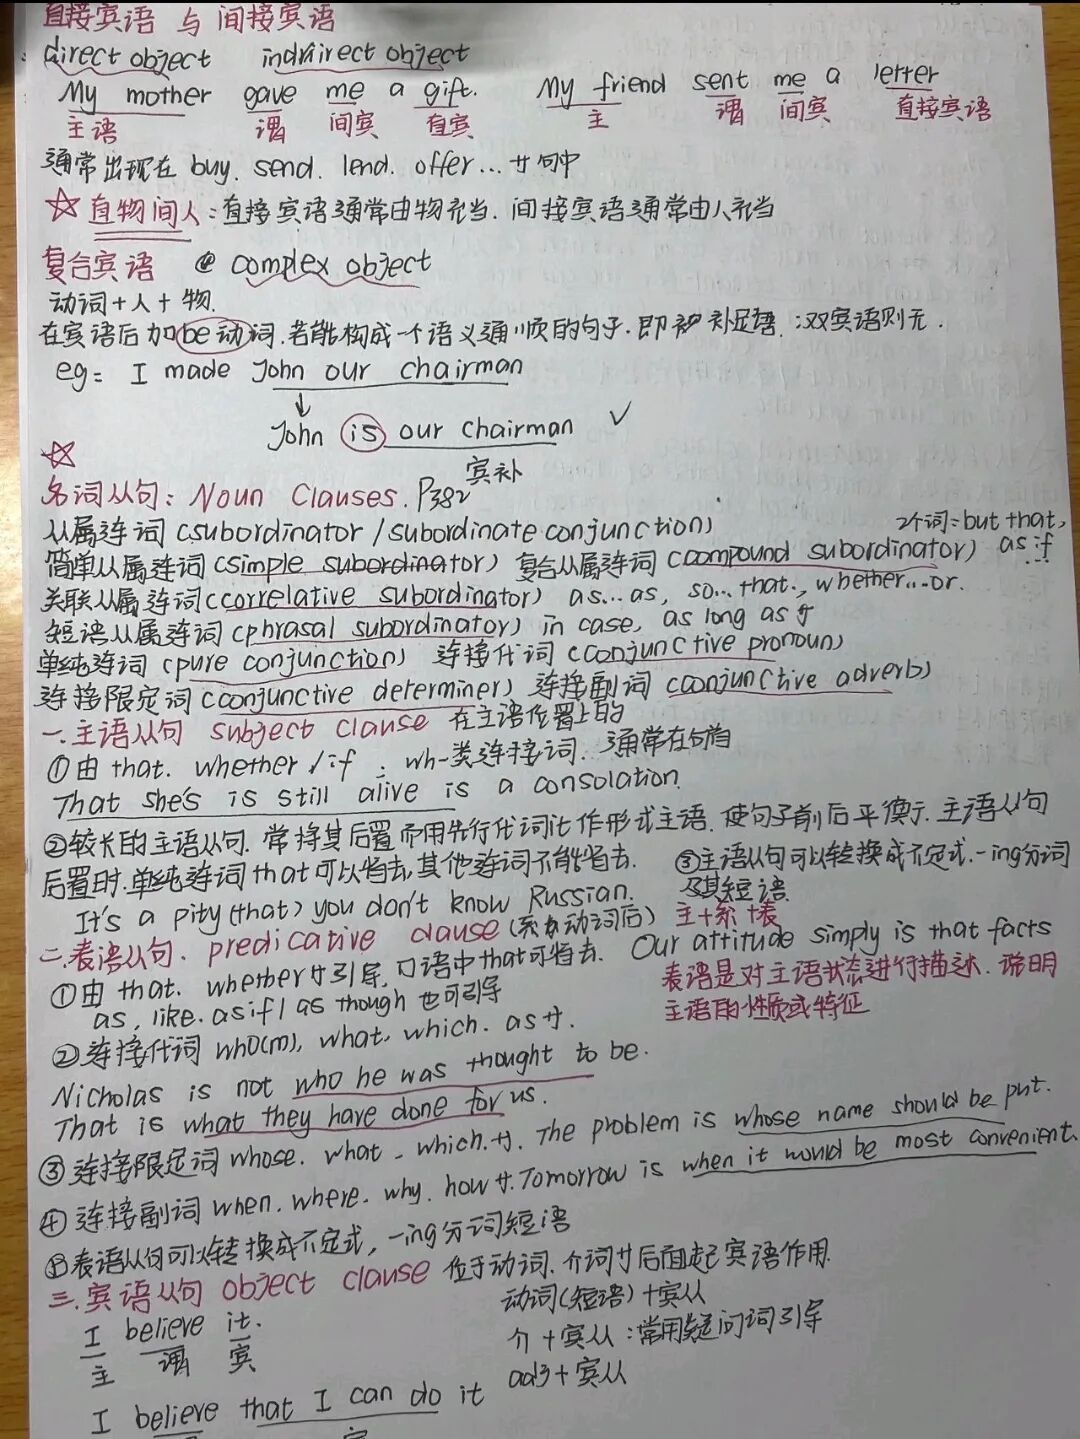 直接宾语 与 间接宾语
direct object indirect object
My mother gave me a gift. My friend sent me a letter
主语 谓 间宾 直宾 主 谓 间宾 直接宾语
通常出现在 buy. send. lend. offer... 廿句中
☆ 直物间人:直接宾语通常由物充当. 间接宾语通常由人充当
复合宾语 complex object
动词+人+物.
在宾语后加be动词.若能构成一个语义通顺的句子.即为补足语;双宾语则无.
eg: I made John our chairman
↓
John is our chairman ✓
☆ 宾补
名词从句: Noun Clauses. P382
从属连词 (subordinator / subordinate conjunction) 2个词:but that,
简单从属连词 (simple subordinator) 复合从属连词 (compound subordinator) as if
关联从属连词 (correlative subordinator) as...as, so...that., whether...or.
短语从属连词 (phrasal subordinator) in case, as long as 廿
单纯连词 (pure conjunction) 连接代词 (conjunctive pronoun)
连接限定词 (conjunctive determiner) 连接副词 (conjunctive adverb)
一.主语从句 subject clause 在主语位置上的
①由 that. whether / if ; wh-类连接词. 通常在句首
That she's is still alive is a consolation.
②较长的主语从句.常将其后置而用先行代词it 作形式主语.使句子前后平衡. 主语从句
后置时.单纯连词that可以省去,其他连词不能省去. ③主语从句可以转换成不定式.-ing分词
及其短语.
It's a pity (that) you don't know Russian.
二.表语从句. predicative clause (系动词后) 主+系+表
①由 that. whether廿引导.口语中that可省去. Our attitude simply is that facts
as, like. as if / as though 也可引导 表语是对主语状态进行描述. 说明
主语的性质或特征
②连接代词 who(m), what, which. as廿.
Nicholas is not who he was thought to be.
That is what they have done for us.
③连接限定词 whose. what. which.廿. The problem is whose name should be put.
④连接副词 when. where. why. how廿. Tomorrow is when it would be most convenient.
⑤表语从句可以转换成不定式, -ing分词短语
三.宾语从句 object clause 位于动词.介词廿后面起宾语作用.
动词(短语)+宾从
I believe it. 介+宾从:常用疑问词引导
主 谓 宾 adj+宾从
I believe that I can do it